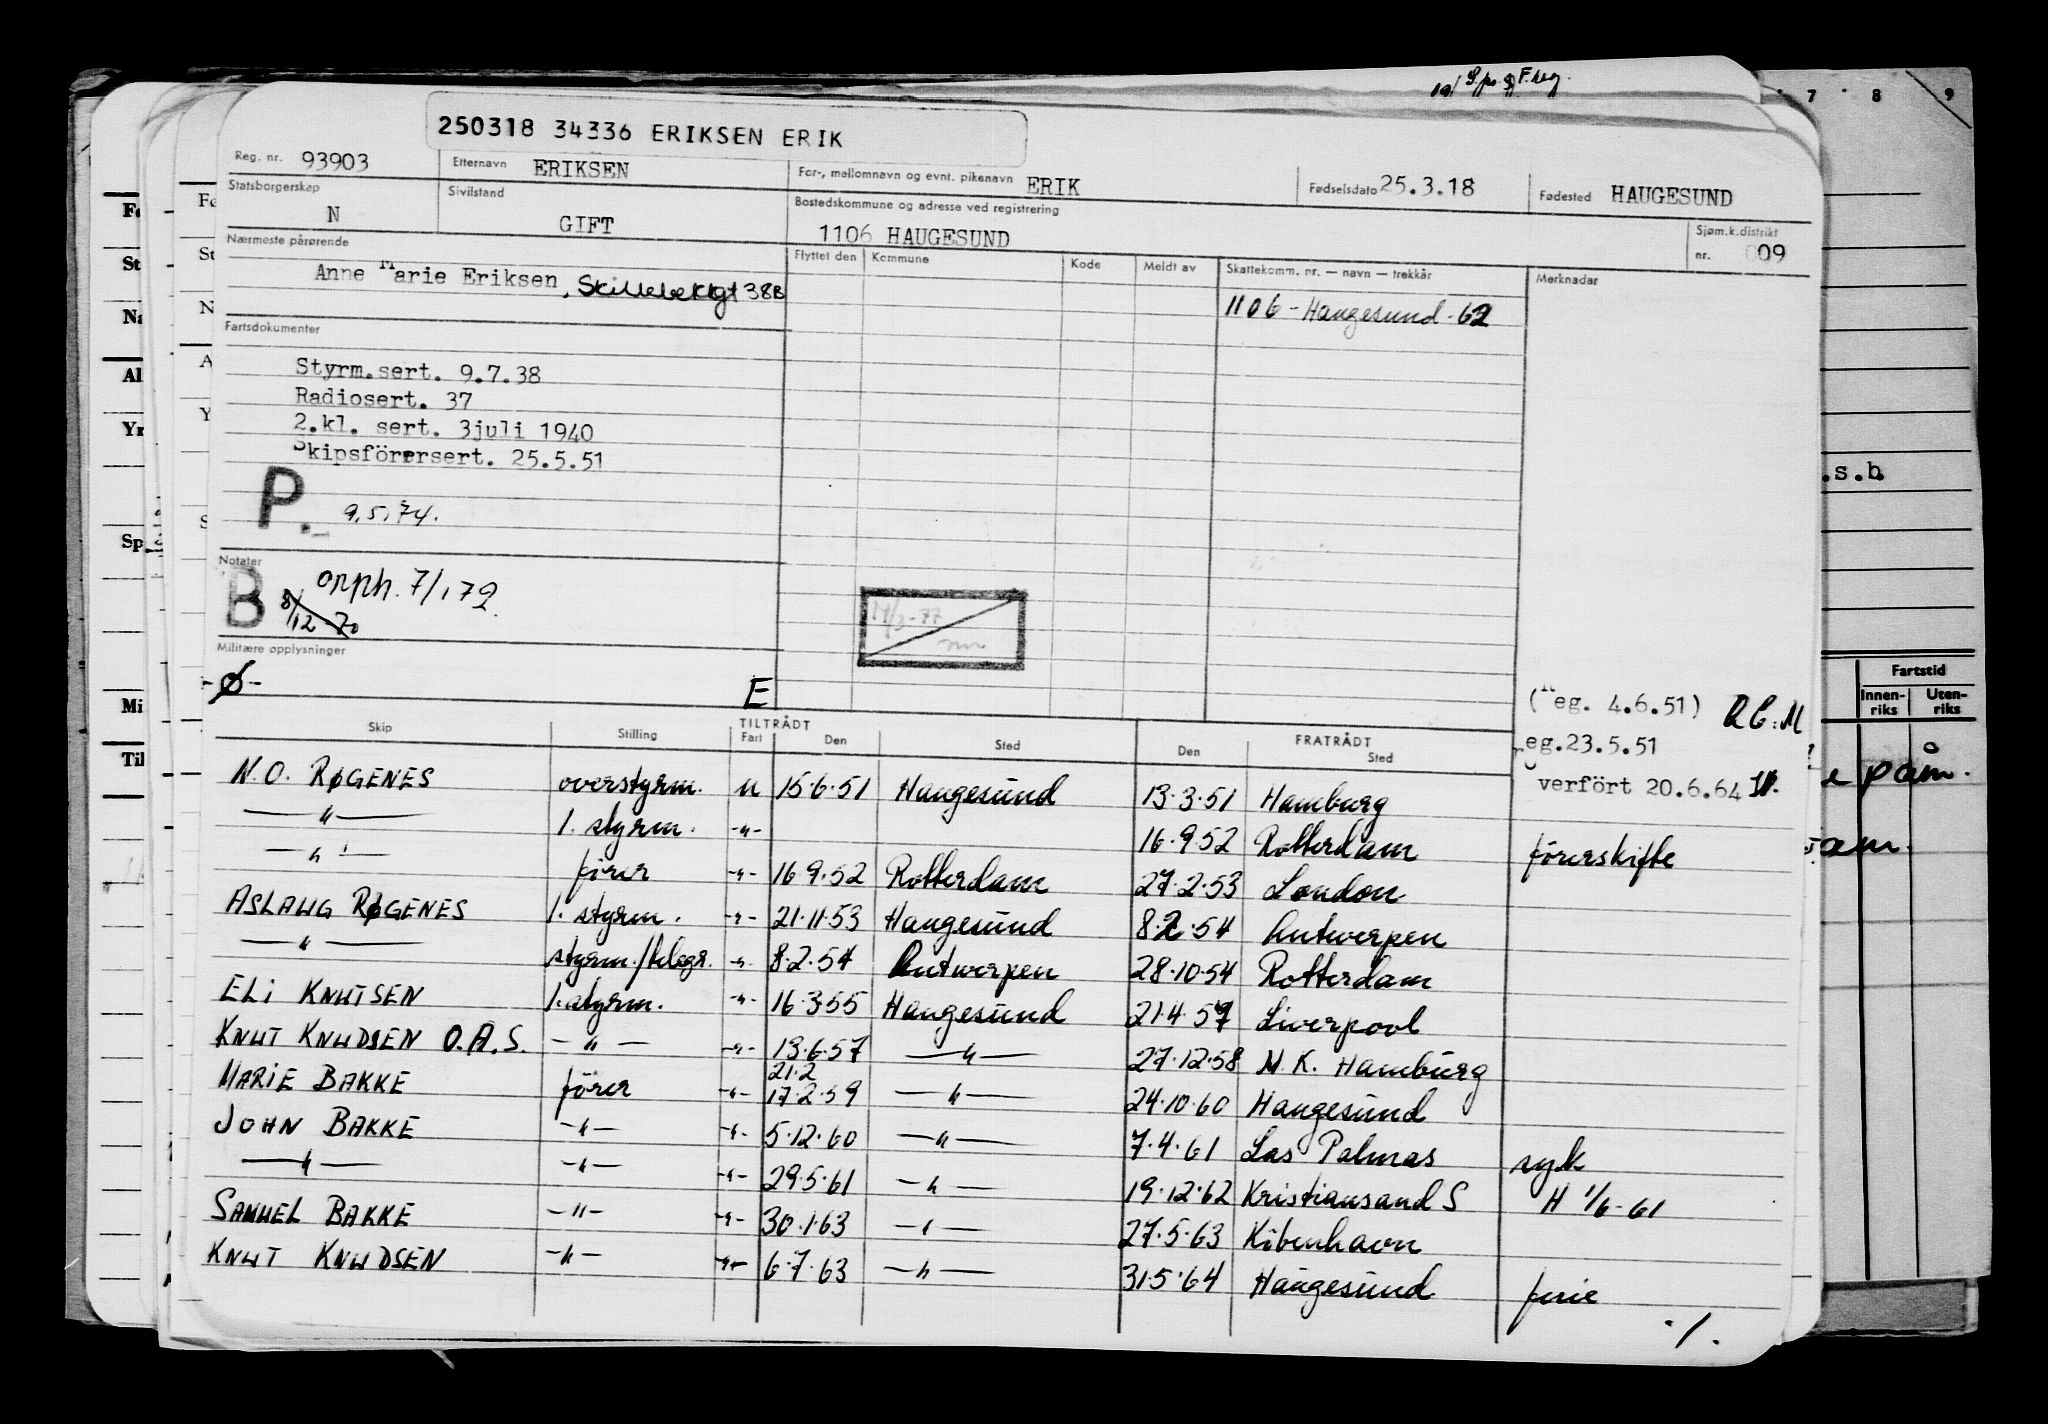 250318 34336 ERIKSEN ERIK
Reg. nr. 93903 Etternavn ERIKSEN For-, mellomnavn og evnt. pikenavn ERIK Fødselsdato 25.3.18 Fødested HAUGESUND
Statsborgerskap N Sivilstand GIFT Bostedskommune og adresse ved registrering 1106 HAUGESUND Sjøm.k.distrikt nr. 009
Nærmeste pårørende Flyttet den Kommune Kode Meldt av Skattekomm. nr. — navn — trekkår Merknader
Anne Marie Eriksen, Skillebekkgt 38B 1106 - Haugesund - 62
Fartsdokumenter
Styrm.sert. 9.7.38
Radiosert. 37
2.kl. sert. 3juli 1940
Skipsförersert. 25.5.51
P. 9.5.74.
Notater
B 8/12-70 opph. 7/1 72
Militære opplysninger
-Ø- E
(Reg. 4.6.51)
reg.23.5.51
Overfört 20.6.64
Skip Stilling TILTRÅDT Fart Den Sted FRATRÅDT Den Sted
N.O. RØGENES overstyrm. u 15.6.51 Haugesund 13.3.51 Hamburg
—"— 1. styrm. -"- 16.9.52 Rotterdam förerskifte
—"— förer -"- 16.9.52 Rotterdam 27.2.53 London
ASLAUG RØGENES 1. styrm. -"- 21.11.53 Haugesund 8.2.54 Antwerpen
—"— styrm./telegr. -"- 8.2.54 Antwerpen 28.10.54 Rotterdam
ELI KNUTSEN 1. styrm. -"- 16.3.55 Haugesund 21.4.57 Liverpool
KNUT KNUDSEN O.A.S. —"— -"- 13.6.57 —"— 27.12.58 M.K. Hamburg
MARIE BAKKE förer -"- 21.2 17.2.59 —"— 24.10.60 Haugesund
JOHN BAKKE -"- -"- 5.12.60 —"— 7.4.61 Las Palmas syk
—"— -"- -"- 29.5.61 —"— 19.12.62 Kristiansand S H 1/6-61
SAMUEL BAKKE -"- -"- 30.1.63 —"— 27.5.63 Köbenhavn
KNUT KNUDSEN -"- -"- 6.7.63 —"— 31.5.64 Haugesund ferie
./.
7 8 9
.s.b
Fartstid
Innenriks Utenriks